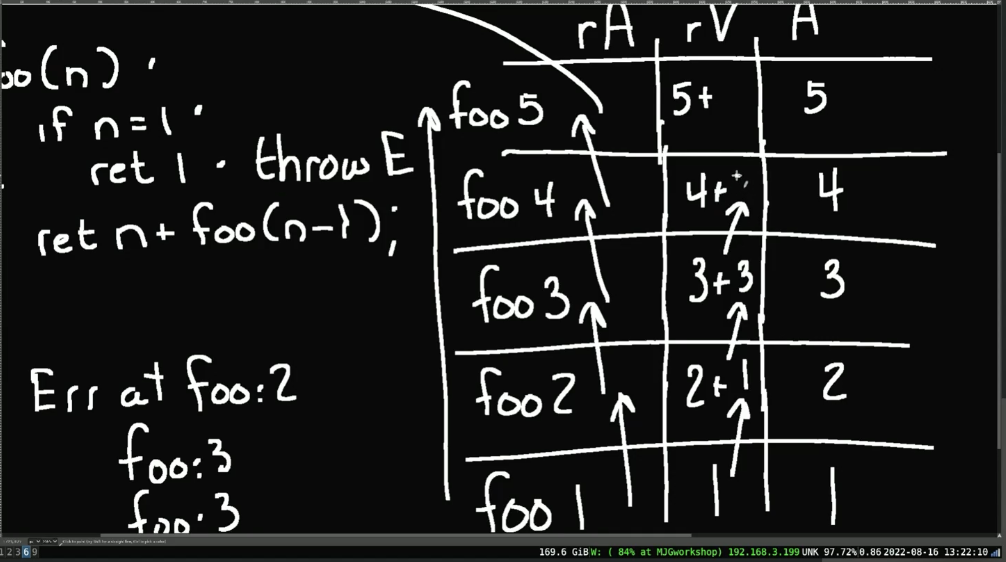 oo(n)
if n=1
ret 1 · throw E
ret n+ foo(n-1);
Err at foo:2
foo:3
foo:3
rA rV A
foo 5 5+ 5
foo 4 4+ 4
foo 3 3+3 3
foo 2 2+1 2
foo 1 1 1
1 2 3 6 9
169.6 GiB W: ( 84% at MJGworkshop) 192.168.3.199 UNK 97.72% 0.86 2022-08-16 13:22:10